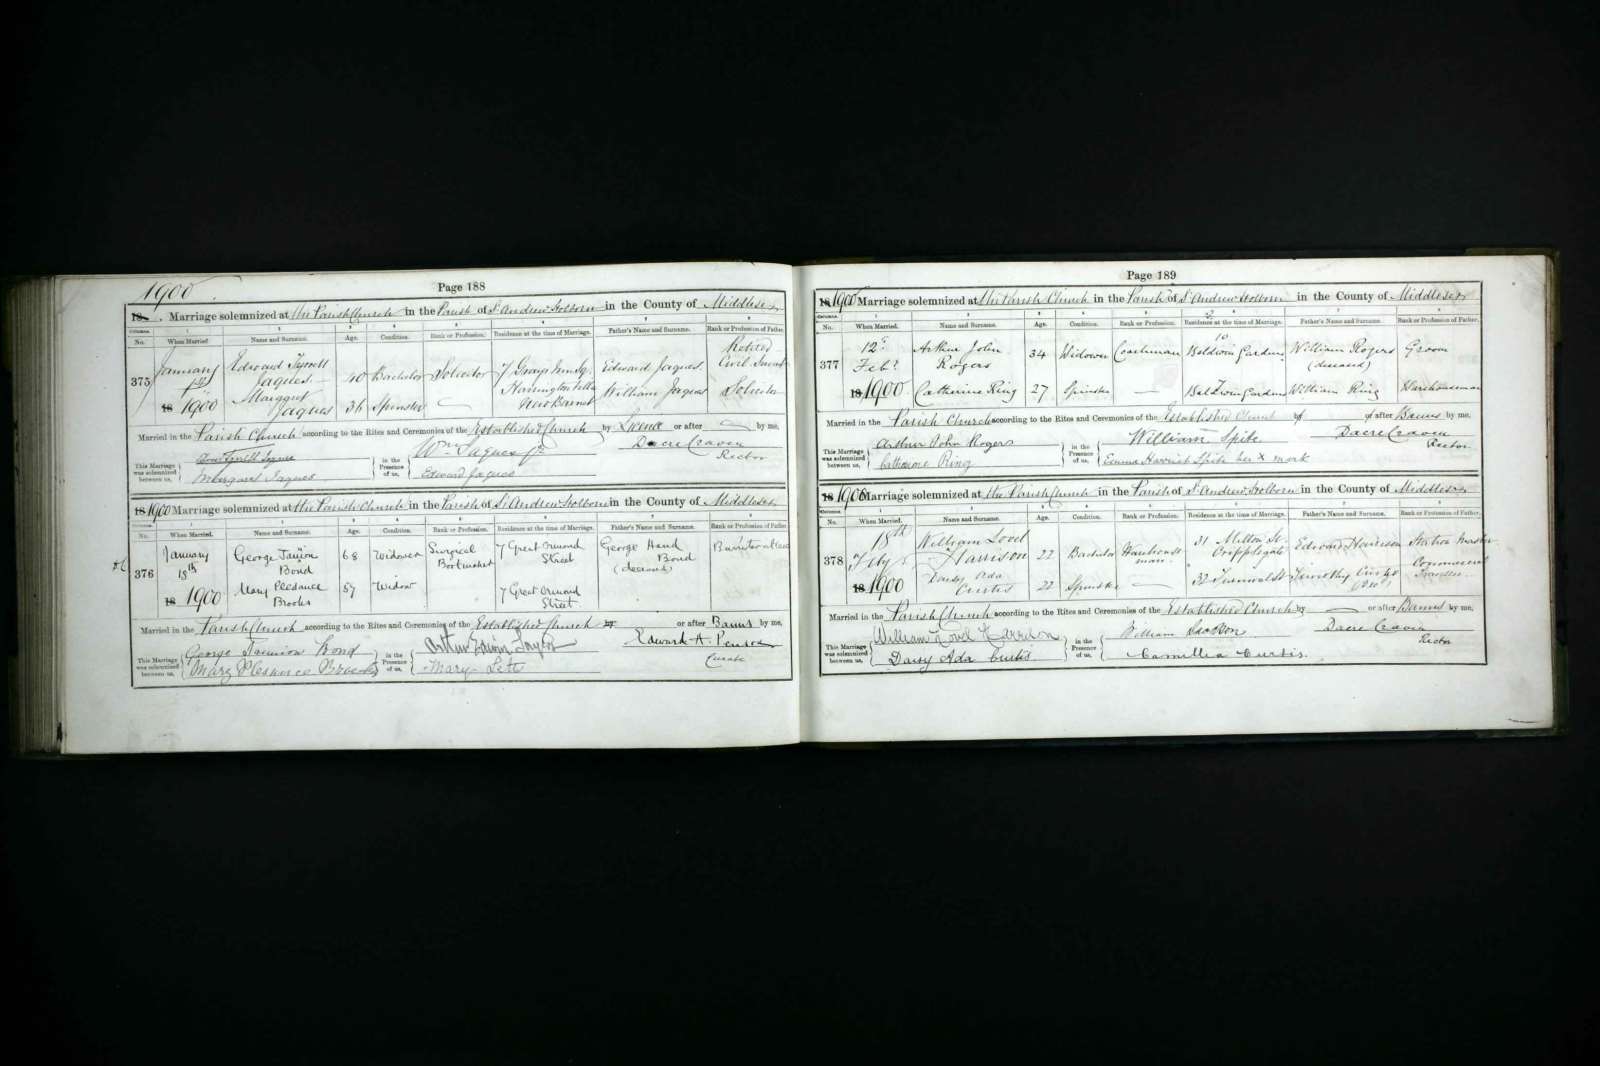 1900
Page 188
18 . Marriage solemnized at the Parish Church in the Parish of St Andrew Holborn in the County of Middlesex
Columns. 1 2 3 4 5 6 7 8
No. When Married. Name and Surname. Age. Condition. Rank or Profession. Residence at the time of Marriage. Father's Name and Surname. Rank or Profession of Father.
375 January Edward Tyrrell Jaques 40 Bachelor Solicitor 7 Grays Inn Sq. Edward Jaques Retired Civil Servant
18 1900 Margaret Jaques 36 Spinster — New Barnet William Jaques Solicitor
Married in the Parish Church according to the Rites and Ceremonies of the Established Church by Licence or after — by me,
This Marriage was solemnized between us, Margaret Jaques in the Presence of us, Wm Jaques Jr Edward Jaques Dacre Craven Rector
18 1900 Marriage solemnized at the Parish Church in the Parish of St Andrew Holborn in the County of Middlesex
Columns. 1 2 3 4 5 6 7 8
No. When Married. Name and Surname. Age. Condition. Rank or Profession. Residence at the time of Marriage. Father's Name and Surname. Rank or Profession of Father.
376 January George Bond 68 Widower Surgical Bootmaker 7 Great Ormond Street George Hand Bond (deceased)
18th
18 1900 Mary Pleasance Brooks 57 Widow 7 Great Ormond Street
Married in the Parish Church according to the Rites and Ceremonies of the Established Church or after Banns by me,
This Marriage was solemnized between us, George Bond Mary Pleasance Brooks in the Presence of us, Arthur Edwin Taylor Mary Lett Edward A. Curate
Page 189
18 1900 Marriage solemnized at the Parish Church in the Parish of St Andrew Holborn in the County of Middlesex
Columns. 1 2 3 4 5 6 7 8
No. When Married. Name and Surname. Age. Condition. Rank or Profession. Residence at the time of Marriage. Father's Name and Surname. Rank or Profession of Father.
377 12 Feby Arthur John Rogers 34 Widower Coachman 10 Baldwin Gardens William Rogers (deceased) Groom
18 1900 Catherine Ring 27 Spinster — Baldwin Gardens William Ring Warehouseman
Married in the Parish Church according to the Rites and Ceremonies of the Established Church by or after Banns by me,
This Marriage was solemnized between us, Arthur John Rogers Catherine Ring in the Presence of us, William Spite Emma Harriet Spite her x mark Dacre Craven Rector
18 1900 Marriage solemnized at the Parish Church in the Parish of St Andrew Holborn in the County of Middlesex
Columns. 1 2 3 4 5 6 7 8
No. When Married. Name and Surname. Age. Condition. Rank or Profession. Residence at the time of Marriage. Father's Name and Surname. Rank or Profession of Father.
378 18th Feby William Lovel Harrison 22 Bachelor Warehouseman 31 Milton St. Cripplegate Edward Harrison Station Master
18 1900 Daisy Ada Curtis 22 Spinster — 32 Timothy Curtis Commercial Traveller
Married in the Parish Church according to the Rites and Ceremonies of the Established Church by — or after Banns by me,
This Marriage was solemnized between us, William Lovel Harrison Daisy Ada Curtis in the Presence of us, William Camillia Curtis. Dacre Craven Rector